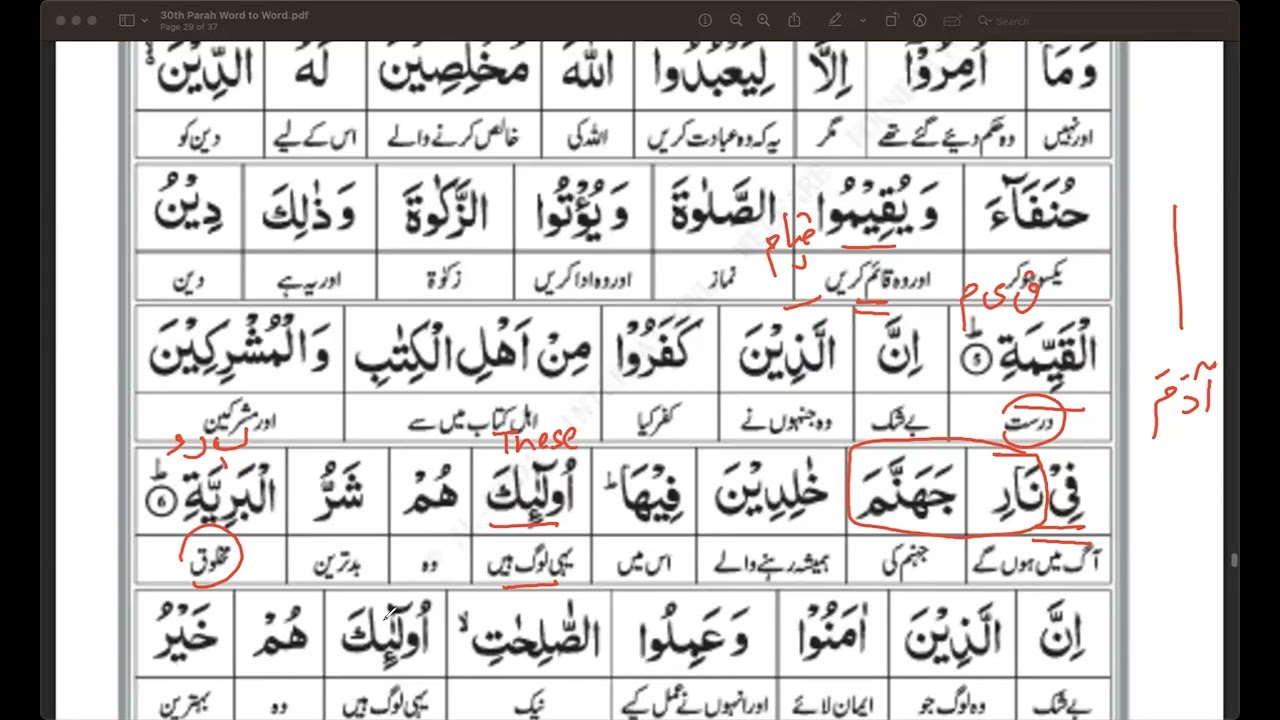 30th Parah Word to Word.pdf
Page 29 of 37
Search
وَمَاۤ اُمِرُوْۤا اِلَّا لِيَعْبُدُوا اللّٰهَ مُخْلِصِيْنَ لَهُ الدِّيْنَ ۙ
اور نہیں وہ حکم دیئے گئے تھے مگر یہ کہ وہ عبادت کریں اللہ کی خالص کرنے والے اس کے لیے دین کو
حُنَفَآءَ وَيُقِيْمُوا الصَّلٰوةَ وَيُؤْتُوا الزَّكٰوةَ وَذٰلِكَ دِيْنُ
قیام
یکسو ہو کر اور وہ قائم کریں نماز اور وہ ادا کریں زکوٰۃ اور یہ ہے دین
ق ی م
الْقَيِّمَةِ ؕ اِنَّ الَّذِيْنَ كَفَرُوْا مِنْ اَهْلِ الْكِتٰبِ وَالْمُشْرِكِيْنَ
آدَمَ
درست بے شک وہ جنہوں نے کفر کیا اہل کتاب میں سے اور مشرکین
These
ب ر و
فِيْ نَارِ جَهَنَّمَ خٰلِدِيْنَ فِيْهَا ؕ اُولٰٓئِكَ هُمْ شَرُّ الْبَرِيَّةِ ؕ
آگ میں ہوں گے جہنم کی ہمیشہ رہنے والے اس میں یہی لوگ ہیں وہ بدترین مخلوق
اِنَّ الَّذِيْنَ اٰمَنُوْا وَعَمِلُوا الصّٰلِحٰتِ ۙ اُولٰٓئِكَ هُمْ خَيْرُ
بے شک وہ لوگ جو ایمان لائے اور انہوں نے عمل کیے نیک یہی لوگ ہیں وہ بہترین